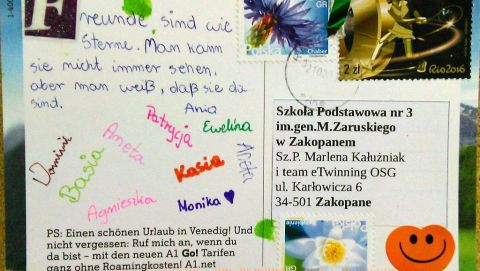 Freunde sind wie
Sterne. Man kann
sie nicht immer sehen,
aber man weiß, daß sie da
sind.
Ania
Patrycja
Ewelina
Dominik
Aneta
Aneta
Basia
Kasia
Agnieszka
Monika
PS: Einen schönen Urlaub in Venedig! Und
nicht vergessen: Ruf mich an, wenn du
da bist – mit den neuen A1 Go! Tarifen
ganz ohne Roamingkosten! A1.net
GR
Polska
Chaber
2 zł
Rio2016
Szkoła Podstawowa nr 3
im.gen.M.Zaruskiego
w Zakopanem
Sz.P. Marlena Kałużniak
i team eTwinning OSG
ul. Karłowicza 6
34-501 Zakopane